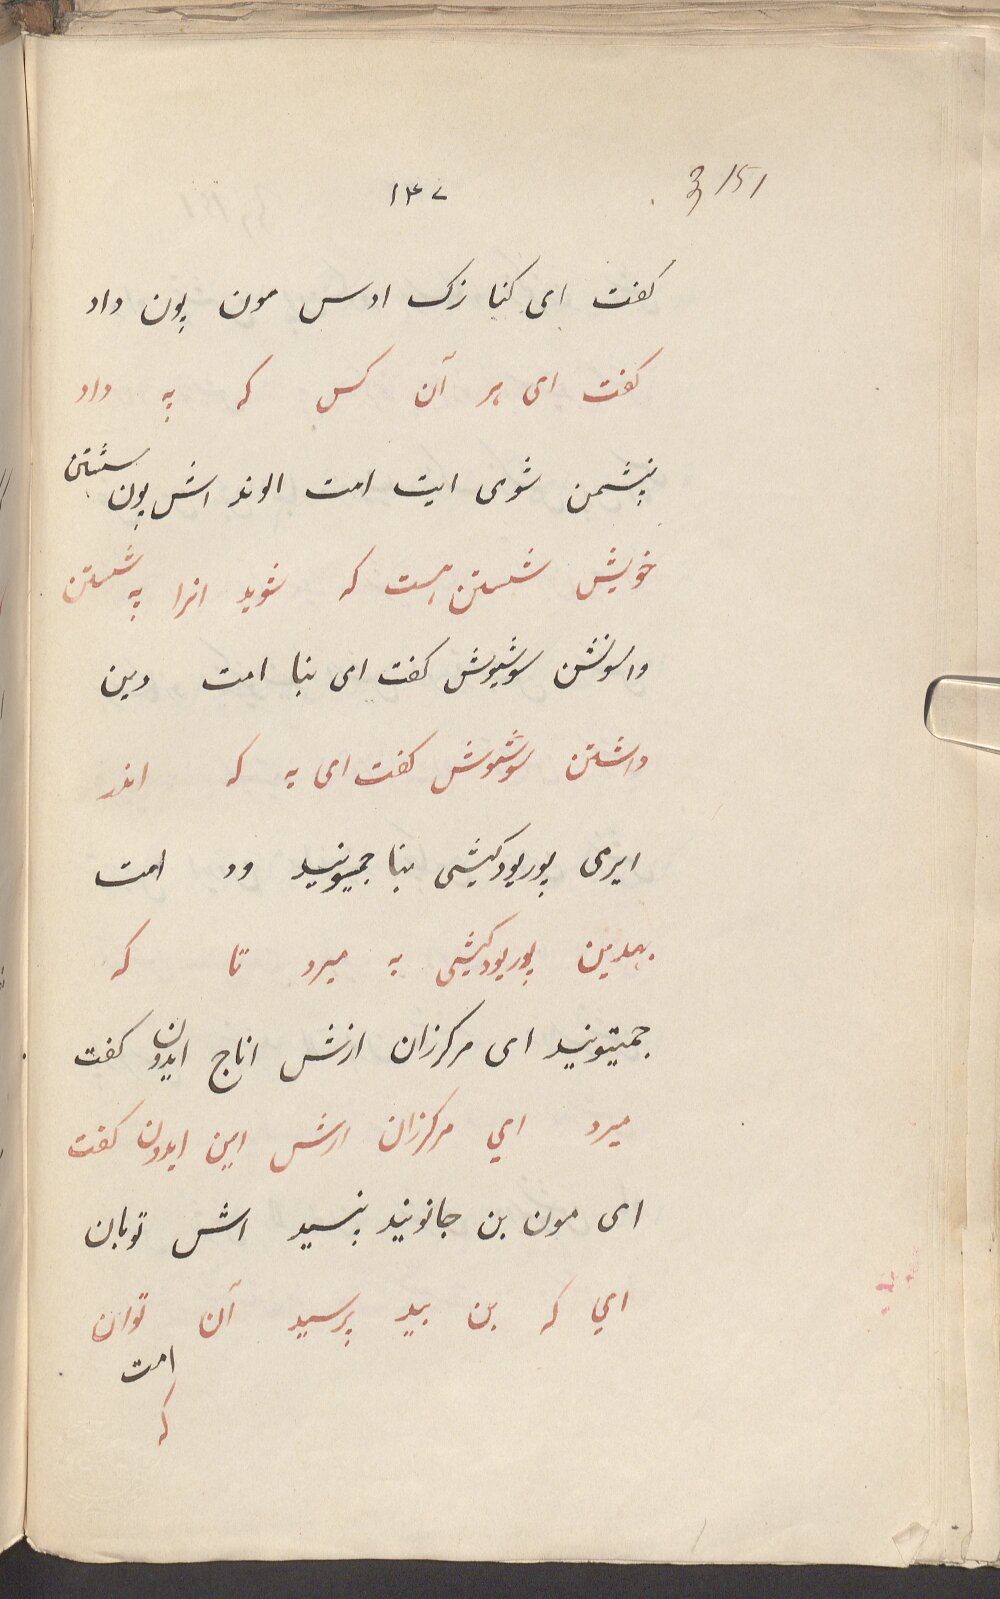 3/51
۱۴۷
کفت ای کنا زک ادس مون پون داد
کفت ای هر آن کس که په داد
پنشمن شوی ایت امت الوند اش پون شستن
خویش شستن هست که شوید انرا په شستن
داسونشن سوشیوش کفت ای بنا امت دین
داشتن سوشیوش کفت ای به که اندر
ایری پوریودکیشی بنا جمیتونید ود امت
بهدین پوریودکیشی به میرد تا که
جمیتونید ای مرکرزان ازش اناج ایدون کفت
میرد اي مرکرزان ازش این ایدون کفت
ای مون بن جانونید پنسید اش توبان
اي که بن بید پرسید آن توان
امت
که